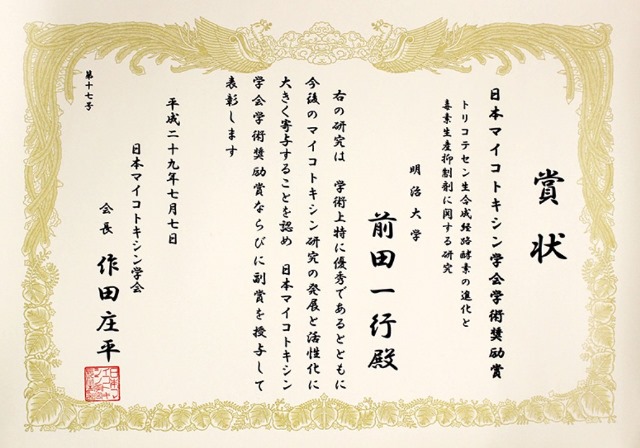 賞状
日本マイコトキシン学会学術奨励賞
トリコテセン生合成経路酵素の進化と
毒素生産抑制剤に関する研究
明治大学
前田一行殿
右の研究は 学術上特に優秀であるとともに
今後のマイコトキシン研究の発展と活性化に
大きく寄与することを認め 日本マイコトキシン
学会学術奨励賞ならびに副賞を授与して
表彰します
平成二十九年七月七日
日本マイコトキシン学会
会長 作田庄平
第十七号